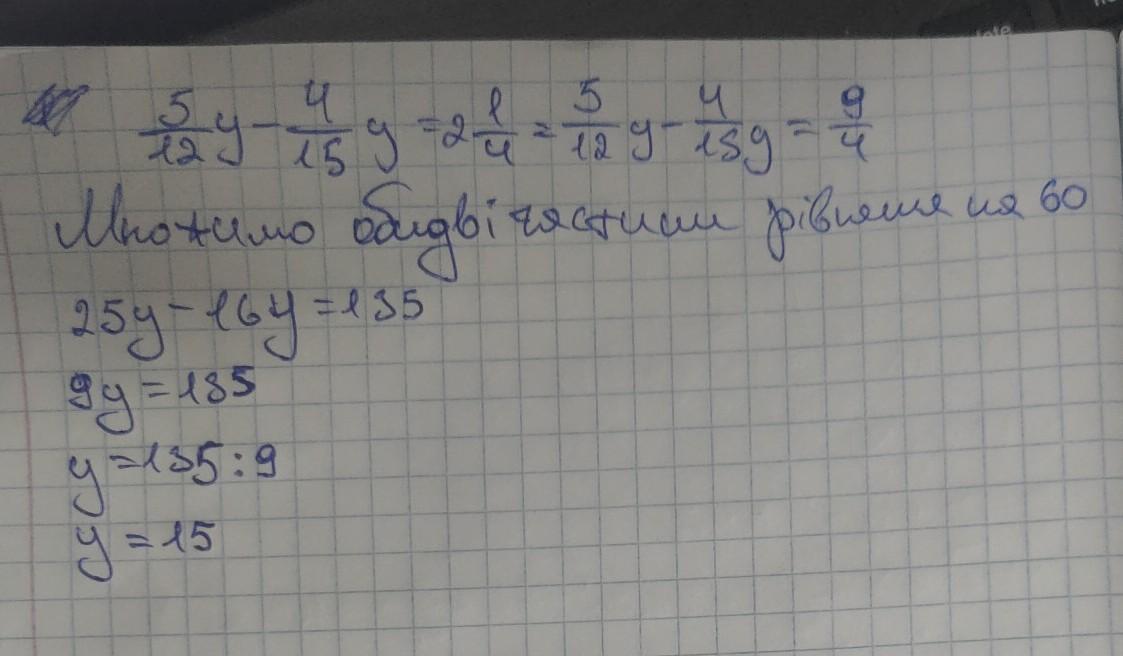 5/12 y - 4/15 y = 2 1/4 = 5/12 y - 4/15 y = 9/4
Множимо обидві частини рівняня на 60
25y - 16y = 135
9y = 135
y = 135 : 9
y = 15